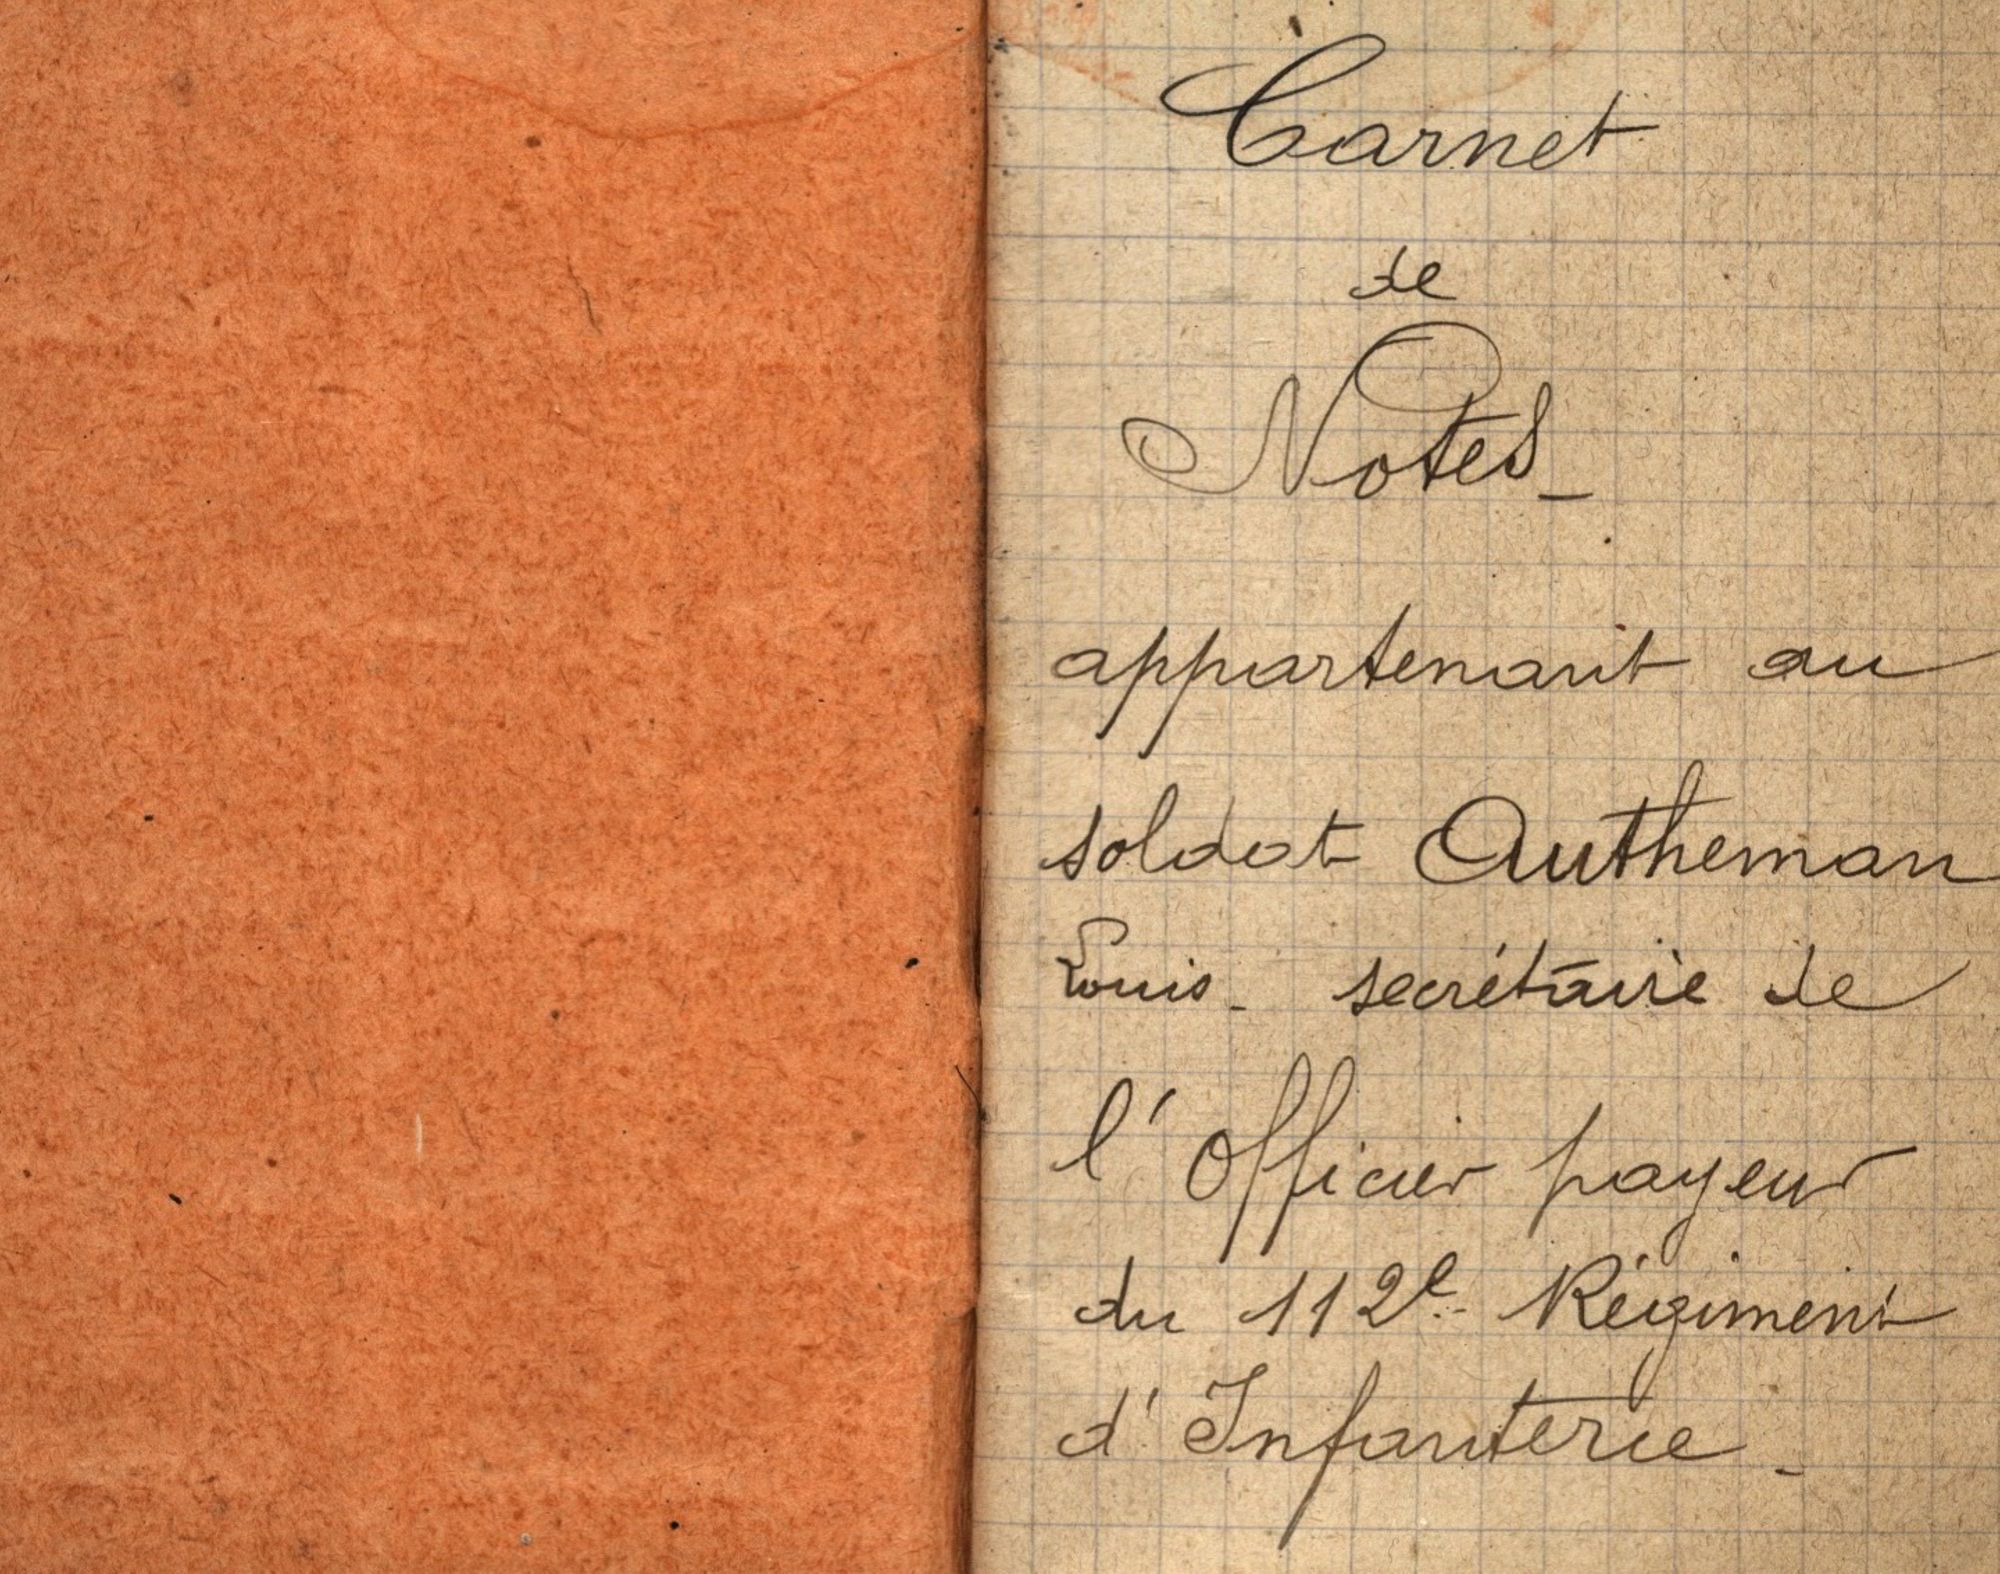 Carnet
de
Notes_
appartenant au
soldat Autheman
Louis_ secrétaire de
l'Officier payeur
du 112e Régiment
d'Infanterie_